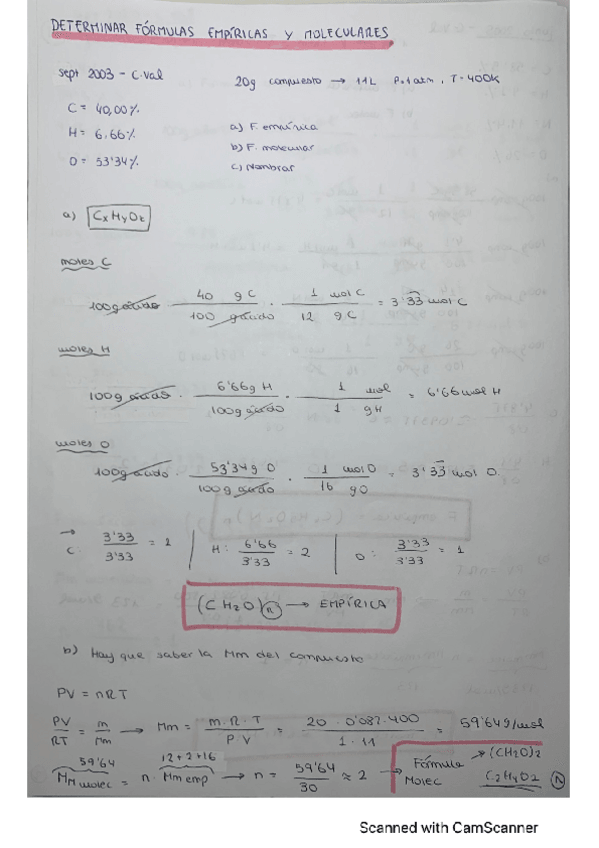 DETERMINAR FÓRMULAS EMPÍRICAS Y MOLECULARES
sept 2003 - C.Val
20g compuesto → 11L P.1atm, T=400K
C = 40,00%
H = 6,66%
O = 53'34%
a) F. empírica
b) F. molecular
c) Nombrar
a) CxHyOz
moles C
100g ácido · 40 g C / 100 g ácido · 1 mol C / 12 g C = 3'33 mol C
moles H
100g ácido · 6'66g H / 100g ácido · 1 mol / 1 gH = 6'66 mol H
moles O
100g ácido · 53'34g O / 100g ácido · 1 mol O / 16 gO = 3'33 mol O.
→ C: 3'33 / 3'33 = 1 | H: 6'66 / 3'33 = 2 | O: 3'33 / 3'33 = 1
(CH2O)n → EMPÍRICA
b) Hay que saber la Mm del compuesto
PV = nRT
PV / RT = m / Mm → Mm = m.R.T / PV = 20 . 0'082.400 / 1 . 11 = 59'64g/mol
59'64 12+2+16
Mm molec = n. Mm emp → n = 59'64 / 30 ≈ 2 → Fórmula Molec → (CH2O)2
C2H4O2 N
Scanned with CamScanner